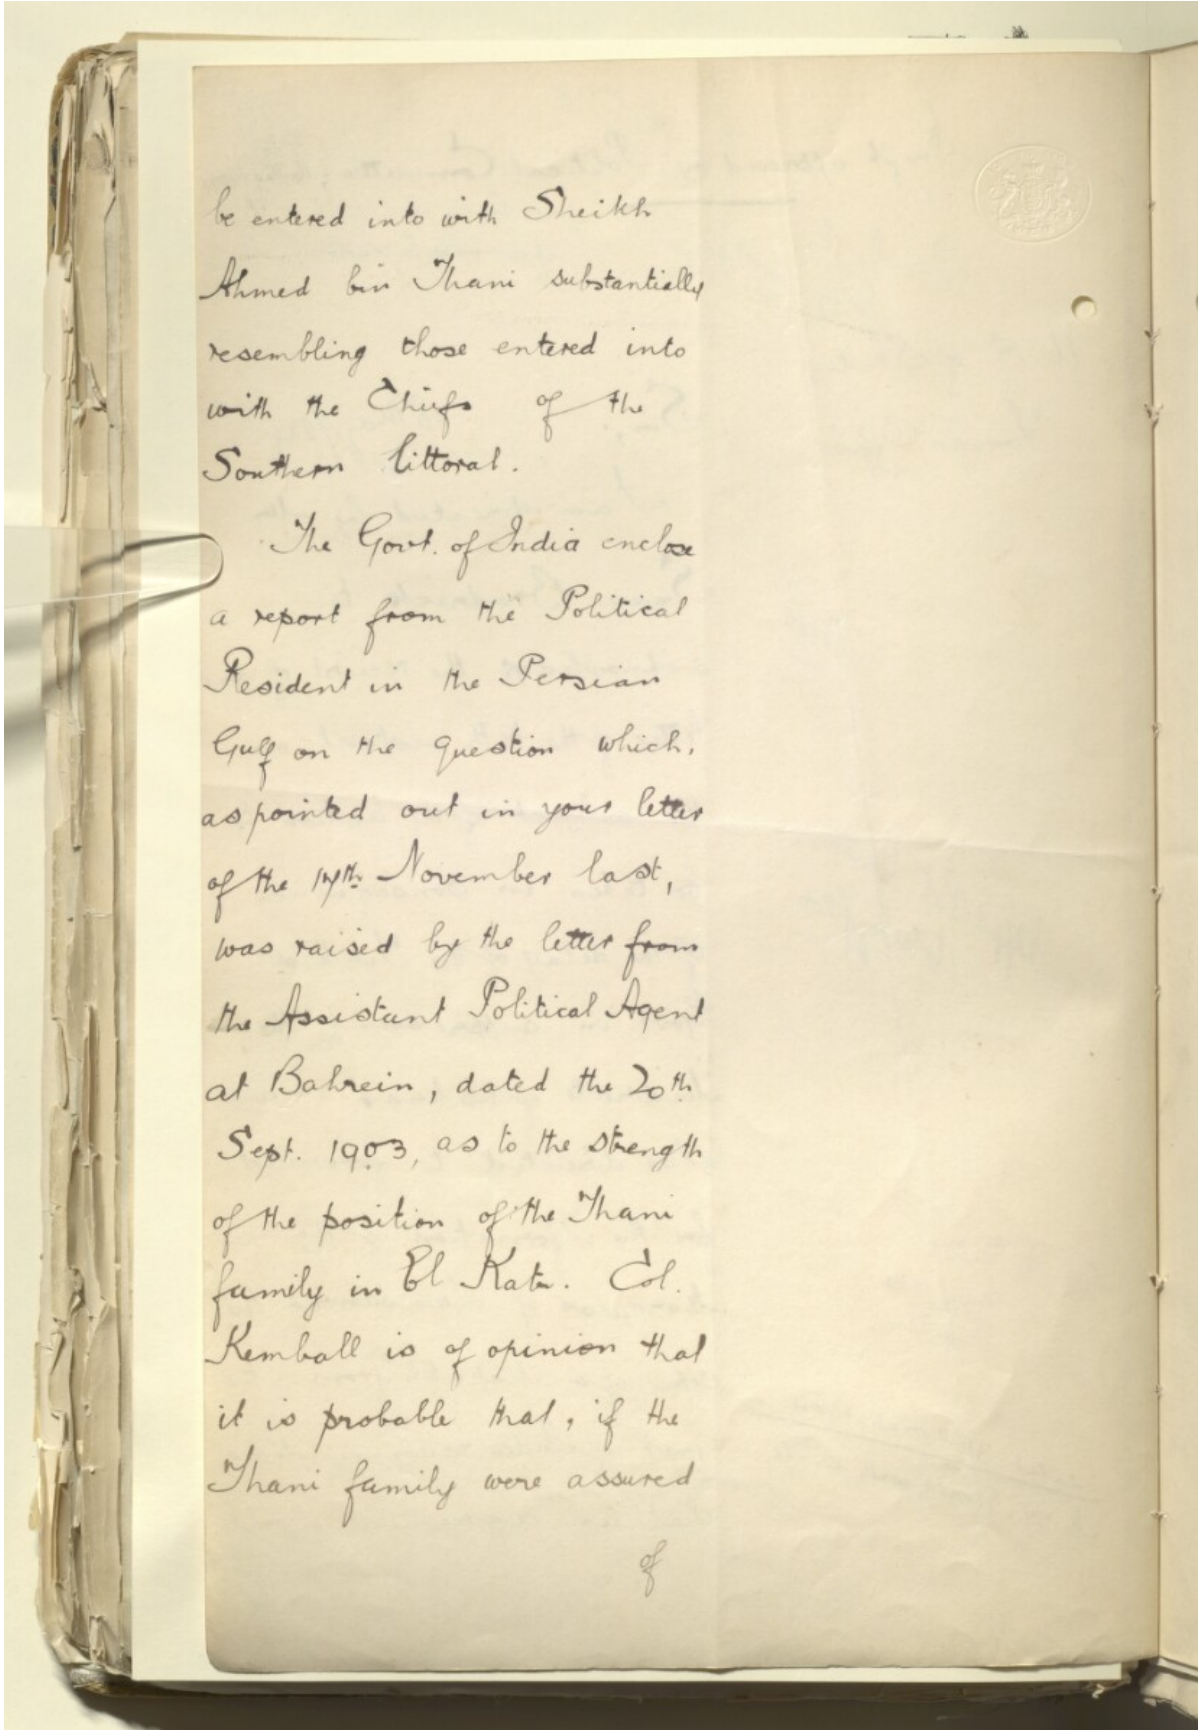 be entered into with Sheikh
Ahmed bin Thani substantially
resembling those entered into
with the Chiefs of the
Southern littoral.
The Govt. of India enclose
a report from the Political
Resident in the Persian
Gulf on the question which,
as pointed out in your letter
of the 17th November last,
was raised by the letter from
the Assistant Political Agent
at Bahrein, dated the 20th
Sept. 1903, as to the strength
of the position of the Thani
family in El Katr. Col.
Kemball is of opinion that
it is probable that, if the
Thani family were assured
of